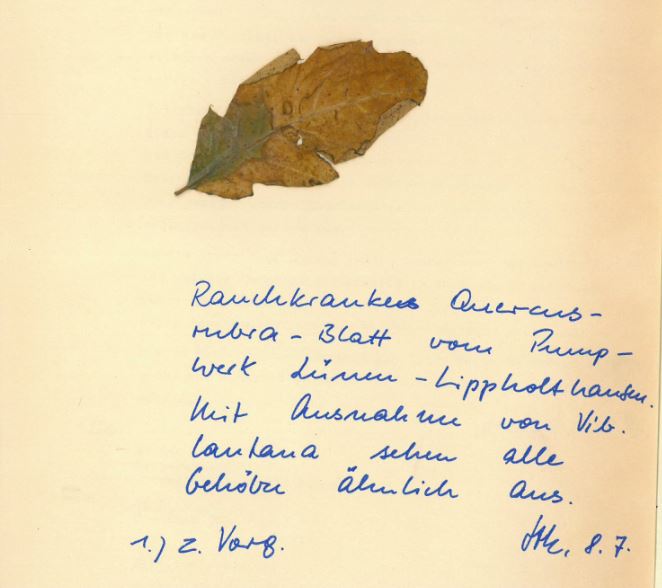 Rauchkrankes Quercus-
rubra-Blatt vom Pump-
werk Lünen-Lippholthausen.
Mit Ausnahme von Vib.
lantana sehen alle
Gehölze ähnlich aus.
1.) z. Vorg. 8.7.